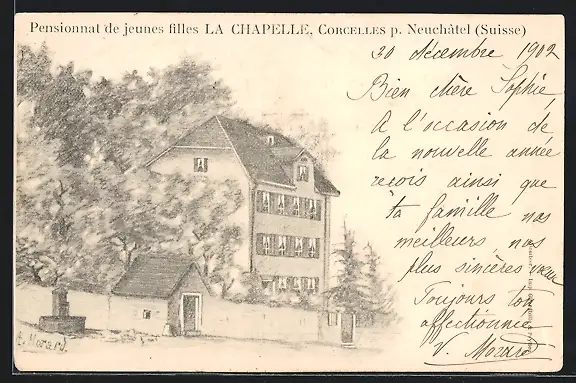 Pensionnat de jeunes filles LA CHAPELLE, CORCELLES p. Neuchâtel (Suisse)
30 décembre 1902
Bien chère Sophie,
A l'occasion de
la nouvelle année
reçois ainsi que
ta famille nos
meilleurs, nos
plus sincères vœux
Toujours ton
affectionnée
V. Morard
A. Morard.